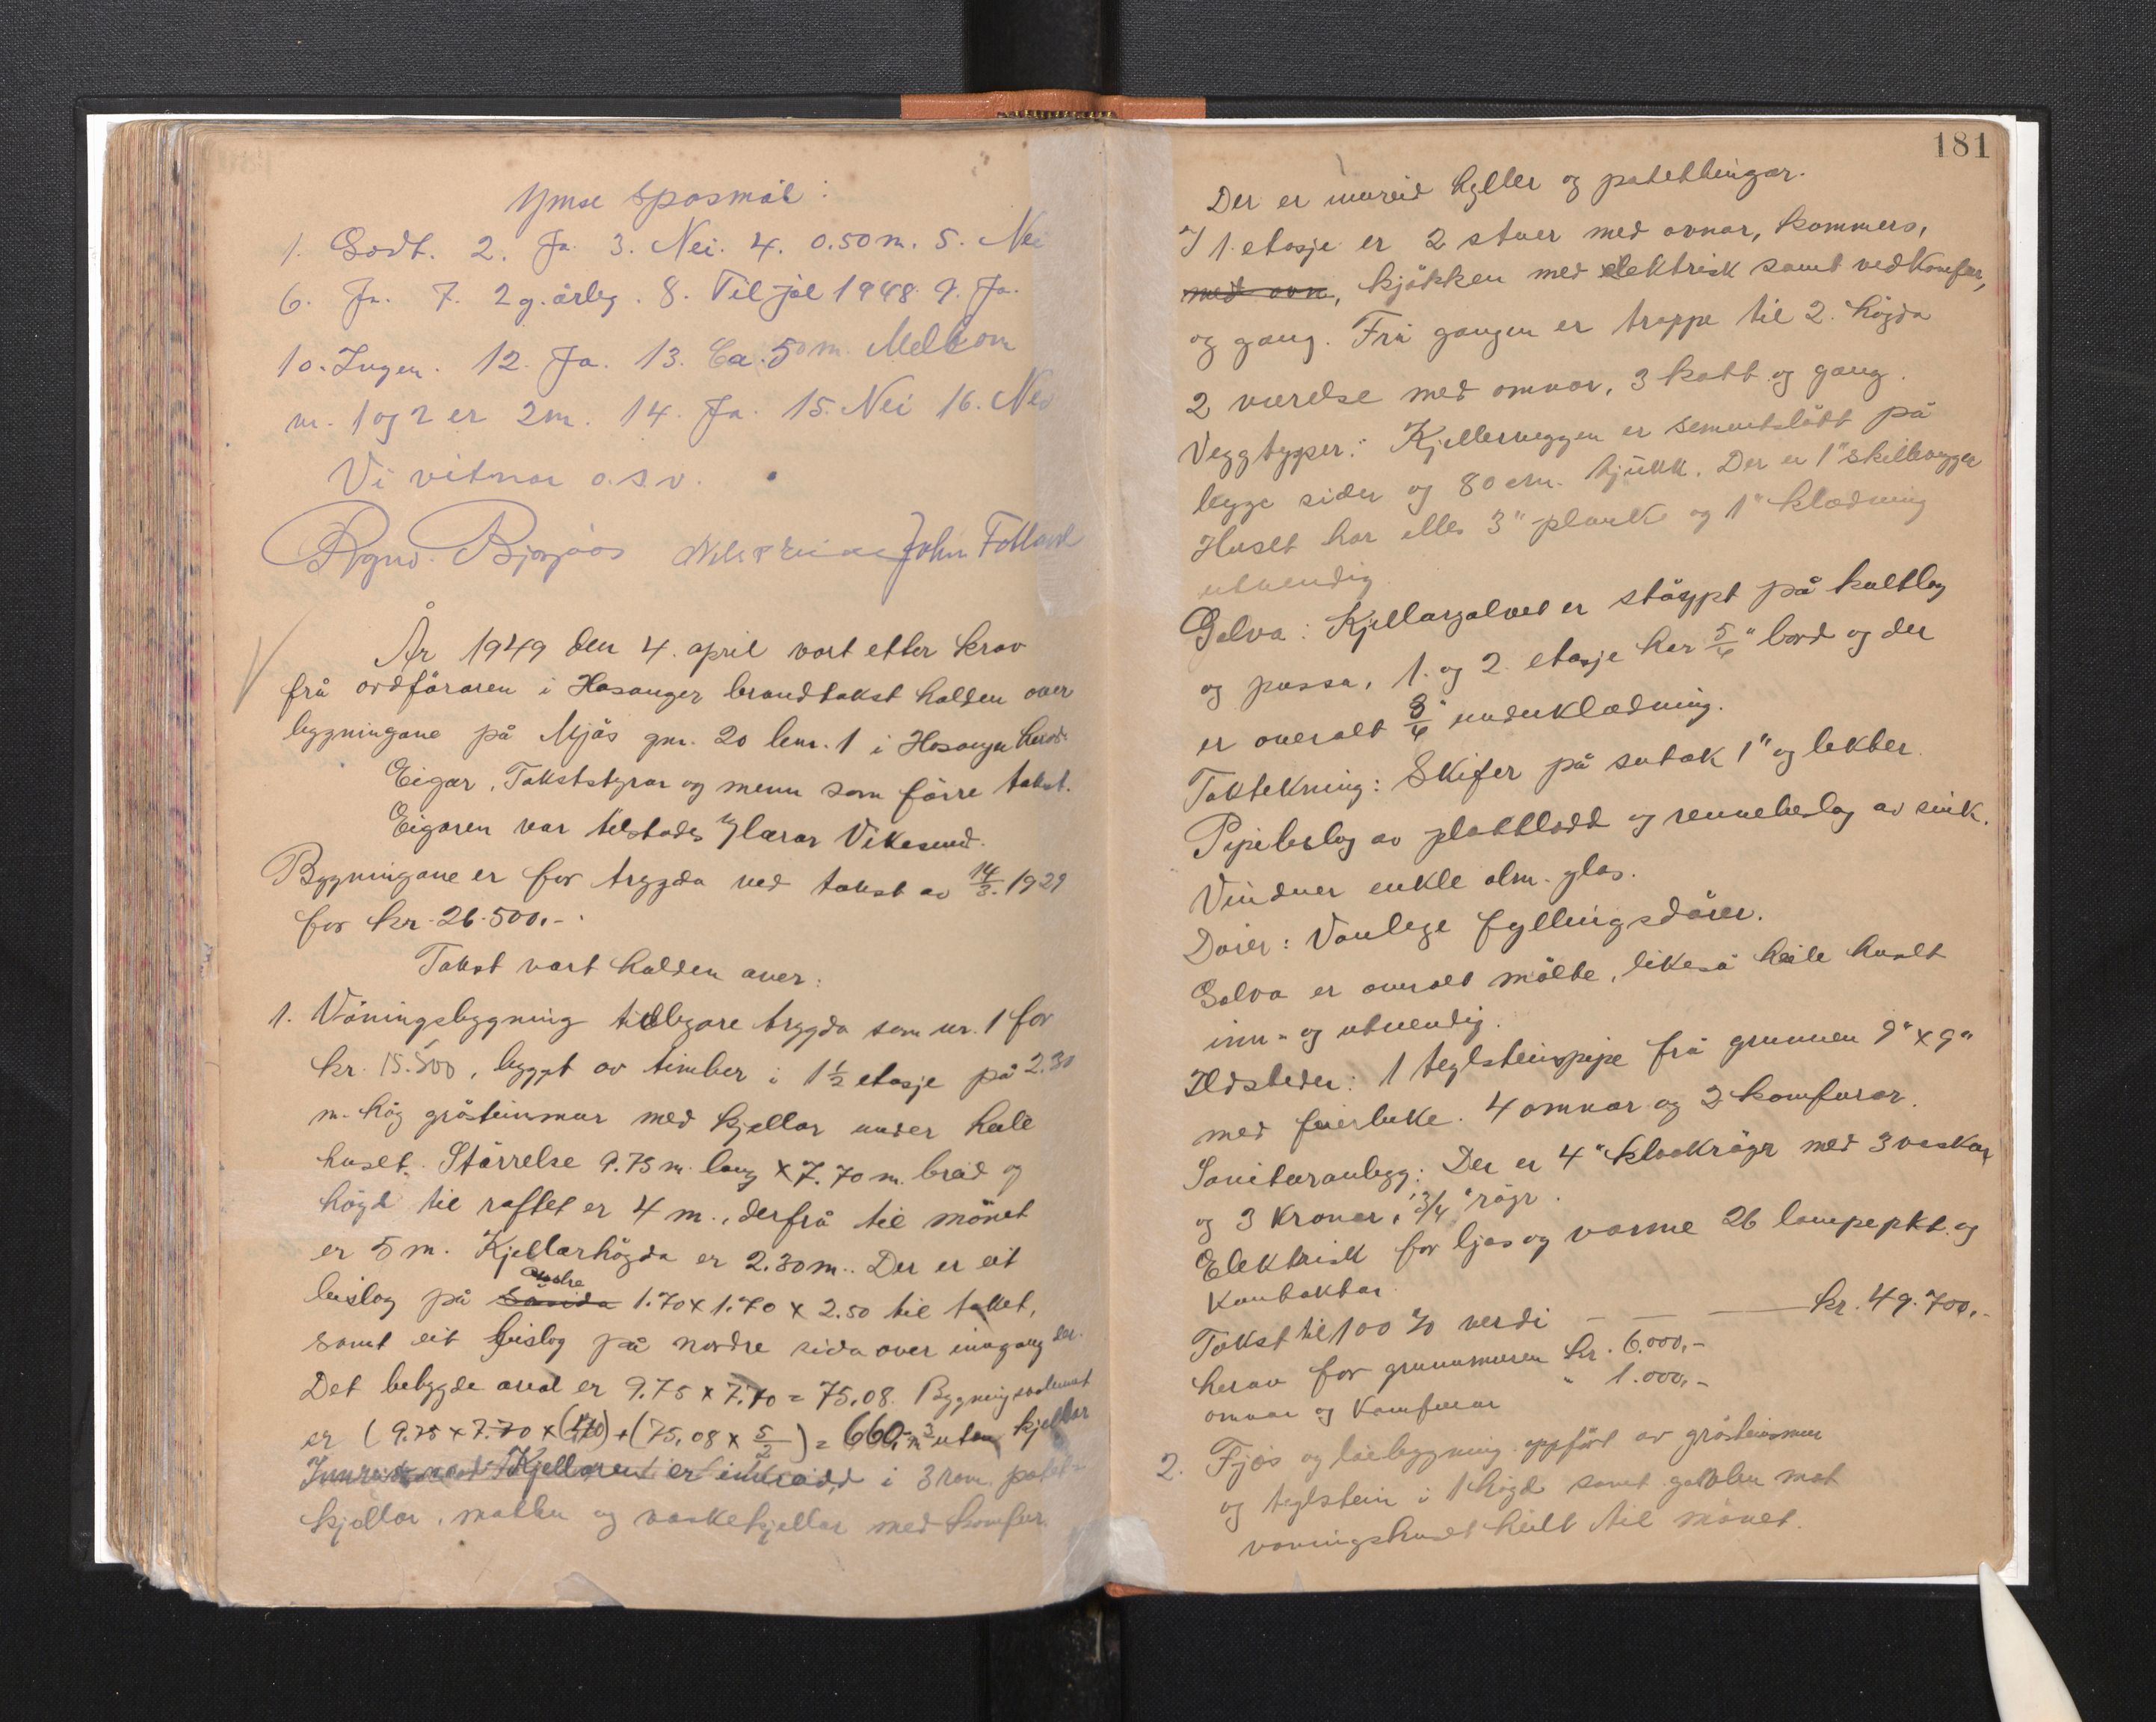 Ymse spørsmål:
1. Godt. 2. Ja 3. Nei. 4. 0.50 m. 5. Nei
6. Ja. 7. 2 g. årleg. 8. Til jol 1948. 9. Ja.
10. Ingen. 12. Ja. 13. Ca. 50 m. Mellom
nr. 1 og 2 er 2 m. 14. Ja. 15. Nei 16. Nei
Vi vitnar o.s.v.
John Fotland
År 1949 den 4. april vart etter krav
frå ordføraren i Hosanger brandtakst halden over
bygningane på Mjøs gnr. 20 bnr. 1 i Hosanger herad.
Eigar, Takststyrar og menn som førre takst.
Eigaren var tilstades v/ lærar Vikesund.
Bygningane er før trygda ved takst av 14/3. 1929
for kr. 26.500,-.
Takst vart halden over:
1. Våningsbygning tidlegare trygda som nr. 1 for
kr. 15.500, bygt av timber i 1 1/2 etasje på 2.30
m. høg gråsteinmur med kjellar under heile
huset. Størrelse 9.75 m. lang x 7.70 m. breid og
høgd til raftet er 4 m., derfrå til mønet
er 5 m. Kjellarhøgda er 2.30 m.. Der er eit
bislag på søre sida 1.70 x 1.70 x 2.50 til taket,
samt eit bislag på nordre sida over inngang der.
Det bebygde areal er 9.75 x 7.70 = 75,08. Bygningsvolumet
er (9.75 x 7.70 x ) + (75,08 x 5/2) = 660 m3 uten kjellar
Kjellaren er innreidd i 3 rom, potet-
kjellar, matbu og vaskekjellar med komfyr.
181
Der er mureid hyller og potetbingar.
I 1. etasje er 2 stuer med ovnar, kammers,
med ovn, kjøkken med elektrisk samt vedkomfyr,
og gang. Frå gangen er trappe til 2. høgda
2 værelse med omnar, 3 kott og gang.
Veggtyper: Kjellerveggen er sementslått på
begge sider og 80 cm. tjukk. Der er 1" skillevegger
Huset har elles 3" plank og 1" klædning
utvendig.
Golva: Kjellargolvet er støypt på kultlag
og pussa, 1. og 2. etasje har 5/4" bord og der
er overalt 3/4" underklædning.
Taktekning: Skifer på sutak 1" og lekter.
Pipebeslag av plattlodd og rennebeslag av sink.
Vinduer enkle alm. glas.
Dører: Vanlege fyllingsdører.
Golva er overalt målte, likeså heile huset
inn- og utvendig.
Ildsteder: 1 teglsteinspipe frå grunnen 9" x 9"
med feierluke. 4 omnar og 2 komfyrar.
Sanitæranlegg: Der er 4" kloakkrøyr med 3 vaskar
og 3 kroner, 3/4" røyr.
Elektrisk for ljos og varme 26 lampepkt. og
Kontaktar.
Takst til 100 % verdi — — — kr. 49.700,-
herav for grunnmuren kr. 6.000,-
omnar og Komfyrar " 1.000,-
2. Fjøs og løebygning oppført av gråsteinsmur
og teglstein i 1 høgd samt gavlen mot
våningshuset heilt til mønet.